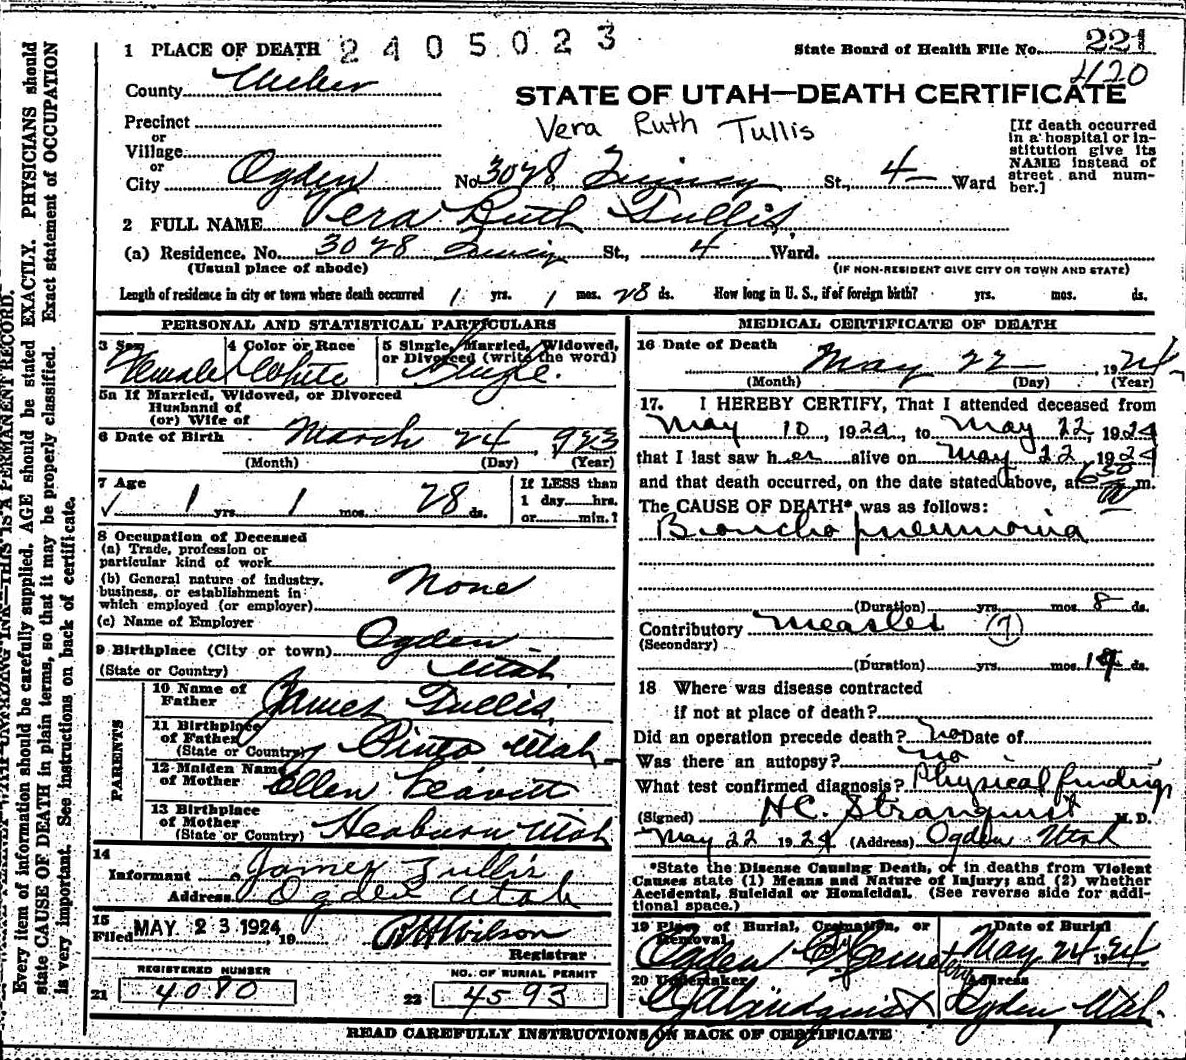 1 PLACE OF DEATH 2405023 State Board of Health File No. 221
420
County Weber
STATE OF UTAH—DEATH CERTIFICATE
Vera Ruth Tullis
Precinct
or
Village
or
City Ogden No 3028 Quincy St., 4 Ward
[If death occurred
in a hospital or in-
stitution give its
NAME instead of
street and num-
ber.]
2 FULL NAME Vera Ruth Tullis
(a) Residence. No. 3028 Quincy St., 4 Ward.
(Usual place of abode) (IF NON-RESIDENT GIVE CITY OR TOWN AND STATE)
Length of residence in city or town where death occurred 1 yrs. 1 mos. 28 ds. How long in U. S., if of foreign birth? yrs. mos. ds.
PERSONAL AND STATISTICAL PARTICULARS
3 Sex 4 Color or Race 5 Single, Married, Widowed,
or Divorced (write the word)
Female White Single.
5a If Married, Widowed, or Divorced
Husband of
(or) Wife of
6 Date of Birth March 24 1923
(Month) (Day) (Year)
7 Age If LESS than
1 yrs. 1 mos. 28 ds. 1 day hrs.
or min.?
8 Occupation of Deceased
(a) Trade, profession or
particular kind of work
(b) General nature of industry,
business, or establishment in
which employed (or employer) None
(c) Name of Employer
9 Birthplace (City or town) Ogden
(State or Country) Utah
PARENTS
10 Name of
Father James Tullis
11 Birthplace
of Father
(State or Country) Pinto Utah
12 Maiden Name
of Mother Ellen Leavitt
13 Birthplace
of Mother
(State or Country) Utah
14
Informant James Tullis
Address Ogden Utah
15
Filed MAY 23 1924, 19 Wilson
Registrar
REGISTERED NUMBER NO. OF BURIAL PERMIT
21 4080 22 4593
MEDICAL CERTIFICATE OF DEATH
16 Date of Death
May 22 1924
(Month) (Day) (Year)
17. I HEREBY CERTIFY, That I attended deceased from
May 10, 1924, to May 22, 1924
that I last saw her alive on May 22 1924
and that death occurred, on the date stated above, at 630 m.
The CAUSE OF DEATH* was as follows:
Broncho pneumonia
(Duration) yrs. mos. 8 ds.
Contributory Measles (7)
(Secondary)
(Duration) yrs. mos. ds.
18 Where was disease contracted
if not at place of death?
Did an operation precede death? no Date of
Was there an autopsy? no
What test confirmed diagnosis? Physical findings
(Signed) HC. Stranquist M. D.
May 22 1924 (Address) Ogden Utah
*State the Disease Causing Death, or in deaths from Violent
Causes state (1) Means and Nature of Injury; and (2) whether
Accidental, Suicidal or Homicidal. (See reverse side for addi-
tional space.)
19 Place of Burial, Cremation, or
Removal. Date of Burial
Ogden City Cemetery May 24 1924
20 Undertaker Address
Lindquist Ogden Utah.
READ CAREFULLY INSTRUCTIONS ON BACK OF CERTIFICATE
THIS IS A PERMANENT RECORD.
Every item of information should be carefully supplied. AGE should be stated EXACTLY. PHYSICIANS should
state CAUSE OF DEATH in plain terms, so that it may be properly classified. Exact statement of OCCUPATION
is very important. See instructions on back of certificate.